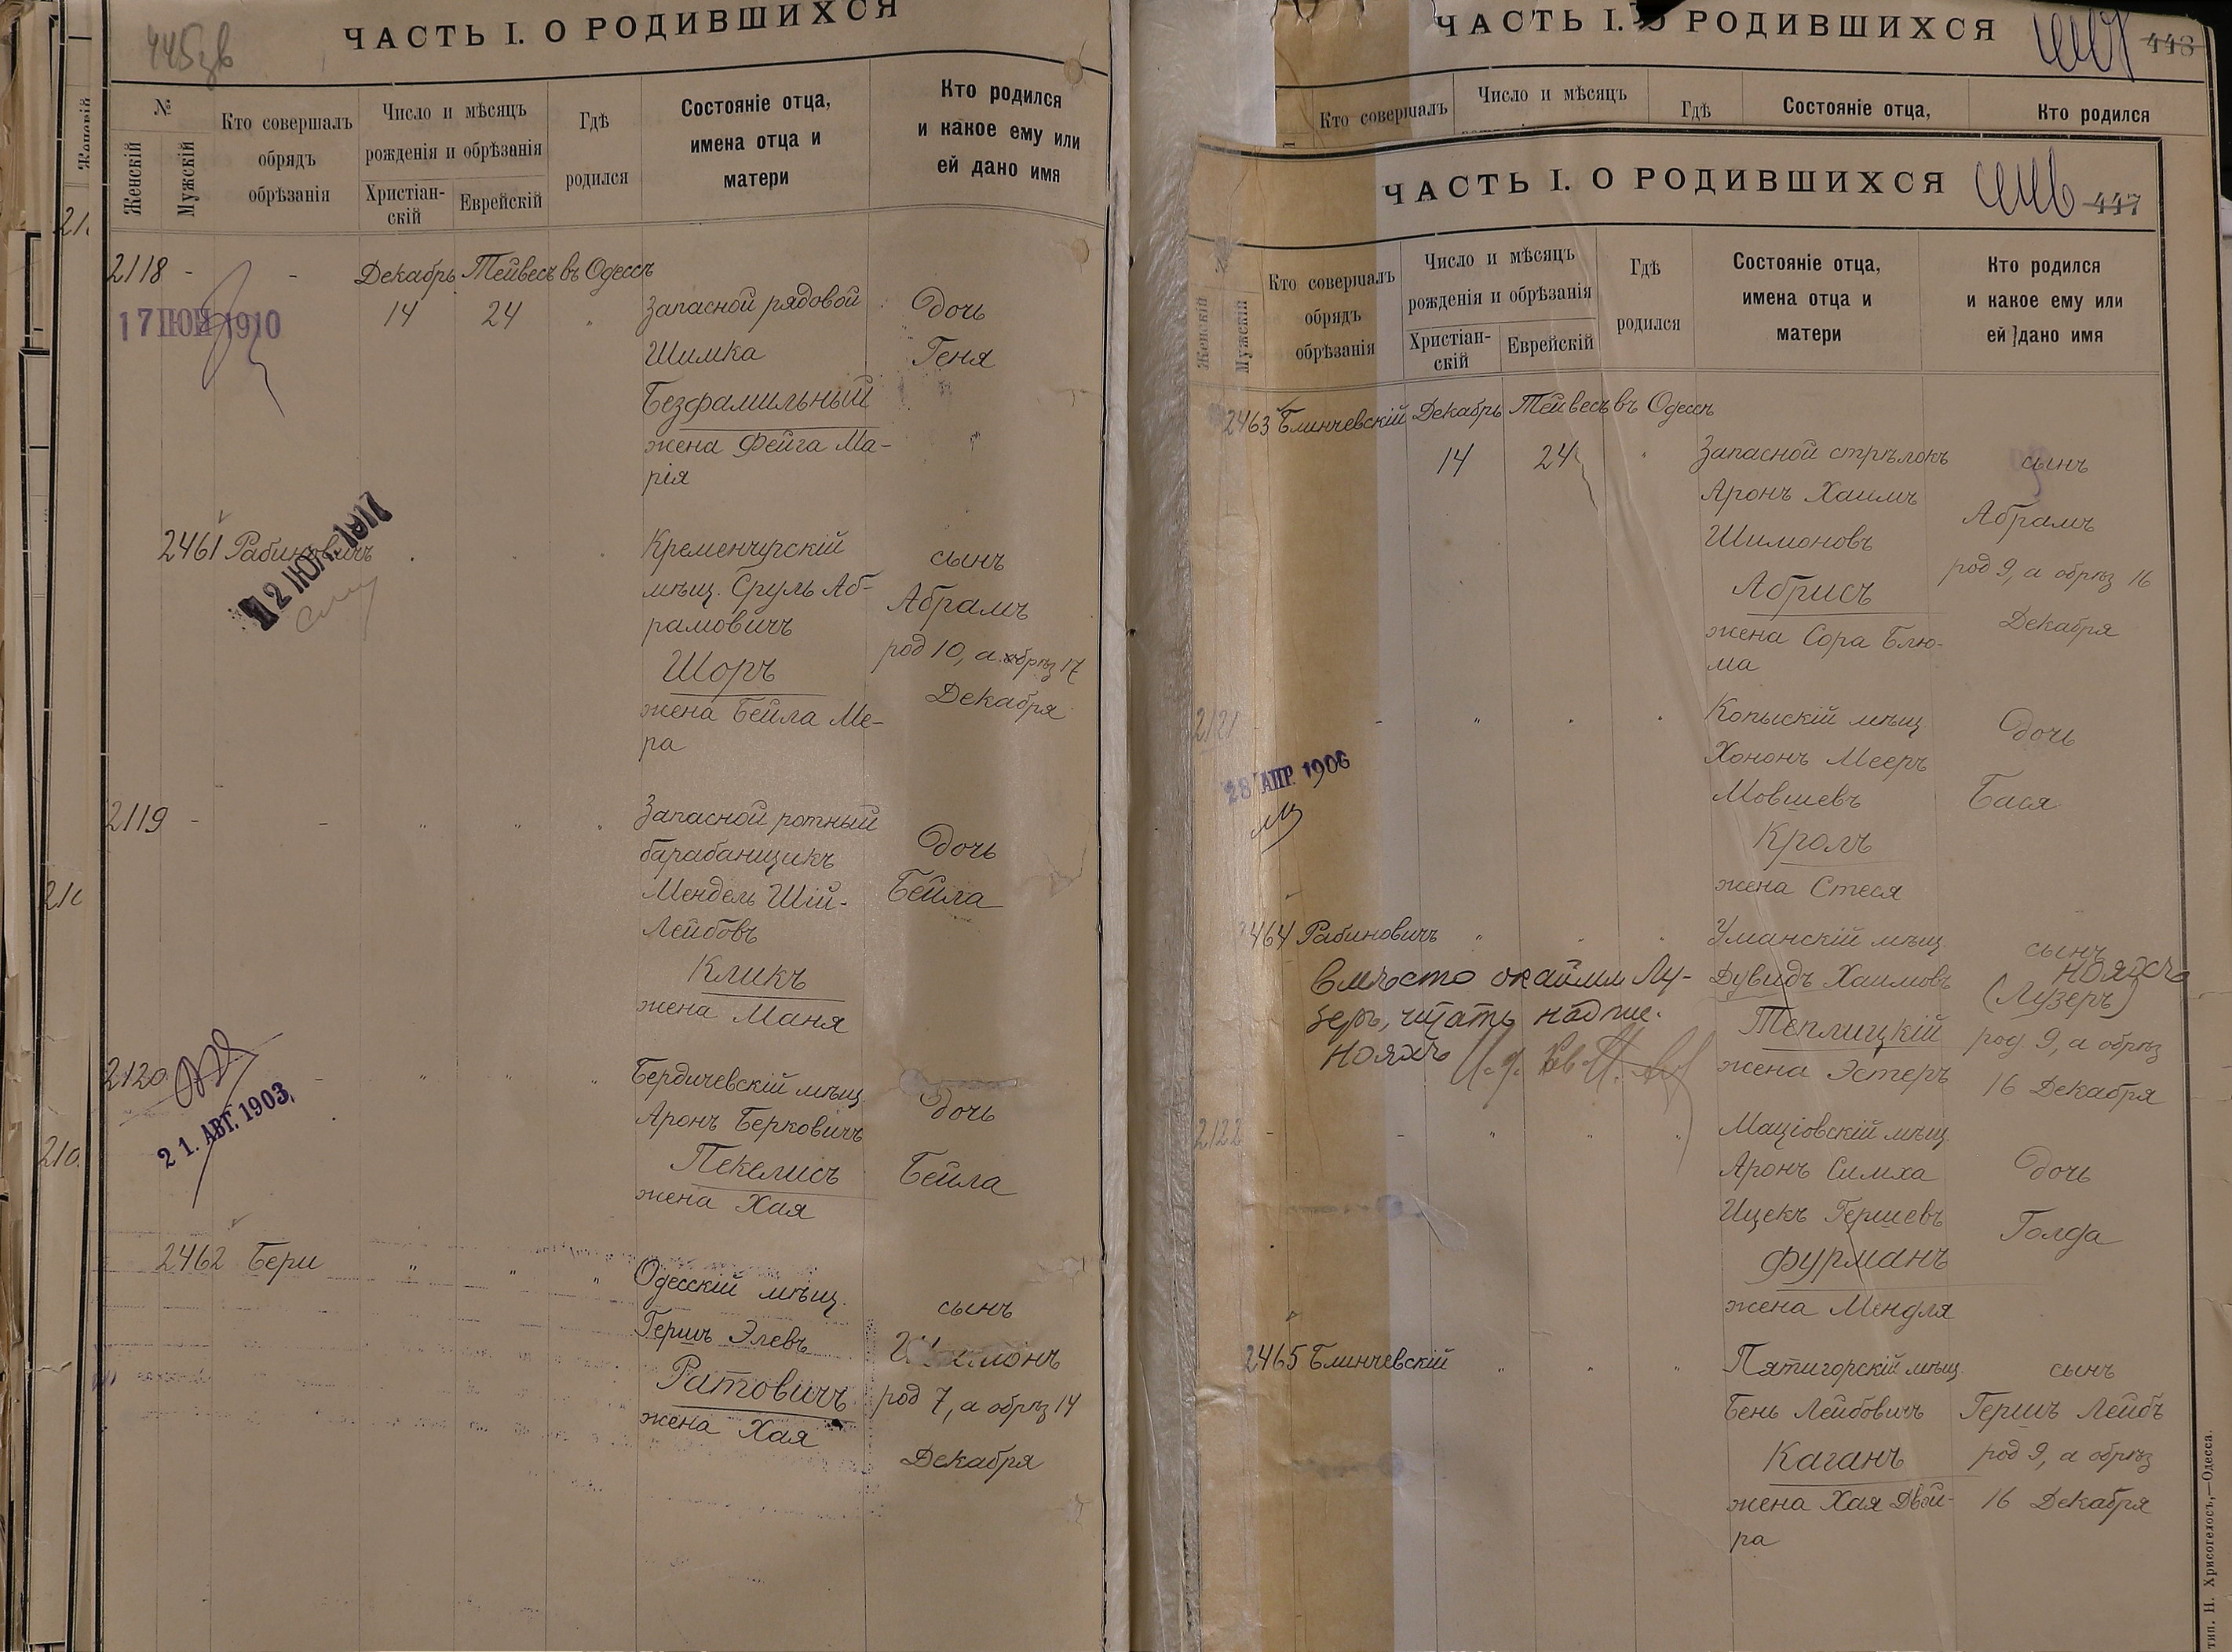 445зв
ЧАСТЬ I. О РОДИВШИХСЯ
№
Женскій
Мужскій
Кто совершалъ
обрядъ
обрѣзанія
Число и мѣсяцъ
рожденія и обрѣзанія
Христіан-
скій
Еврейскій
Гдѣ
родился
Состояніе отца,
имена отца и
матери
Кто родился
и какое ему или
ей дано имя
2118 - - Декабрь Тейвесъ въ Одессѣ
17 ІЮН 1910
14 24 "
Запасной рядовой
Шимка
Безфамильный
жена Фейга Ма-
рія
Дочь
Геня
2461 Рабиновичъ
Кременчугскій
мѣщ. Сруль Аб-
рамовичъ
Шоръ
жена Бейла Ме-
ра
сынъ
Абрамъ
род 10, а обрѣз 17
Декабря
2119 - - " " "
Запасной ротный
барабанщикъ
Мендель Шій-
Лейбовъ
Кликъ
жена Маня
Дочь
Бейла
2120 - " " "
21. АВГ. 1903
Бердичевскій мѣщ.
Аронъ Берковичъ
Пекелисъ
жена Хая
Дочь
Бейла
2462 Бери " " "
Одесскій мѣщ.
Гершъ Элевъ
Ратовичъ
жена Хая
сынъ
род 7, а обрѣз 14
Декабря
ЧАСТЬ I. О РОДИВШИХСЯ
448
Кто совершалъ
Число и мѣсяцъ
Гдѣ
Состояніе отца,
Кто родился
ЧАСТЬ I. О РОДИВШИХСЯ
447
№
Женскій
Мужскій
Кто совершалъ
обрядъ
обрѣзанія
Число и мѣсяцъ
рожденія и обрѣзанія
Христіан-
скій
Еврейскій
Гдѣ
родился
Состояніе отца,
имена отца и
матери
Кто родился
и какое ему или
ей дано имя
2463 Блинчевскій Декабрь Тейвесъ въ Одессѣ
14 24 "
Запасной стрѣлокъ
Аронъ Хаимъ
Шимоновъ
Абрисъ
жена Сора Блю-
ма
сынъ
Абрамъ
род 9, а обрѣз 16
Декабря
2121 - - "
28 АПР. 1906
Копыскій мѣщ.
Хононъ Мееръ
Мовшевъ
Кролъ
жена Стеся
Дочь
Бася
2464 Рабиновичъ "
Вмѣсто окайми Лу-
зеръ, читать надпис.
Нояхъ
Уманскій мѣщ.
Дувидъ Хаимовъ
Теплицкій
жена Эстеръ
сынъ
Нояхъ
(Лузеръ)
род 9, а обрѣз
16 Декабря
2122 - - " " "
Маціовскій мѣщ.
Аронъ Симха
Ицекъ Гершевъ
Фурманъ
жена Мендля
Дочь
Голда
2465 Блинчевскій " " "
Пятигорскій мѣщ.
Бень Лейбовичъ
Каганъ
жена Хая Двой-
ра
сынъ
Гершъ Лейбъ
род 9, а обрѣз
16 Декабря
тип. Н. Хрисогелосъ,—Одесса.